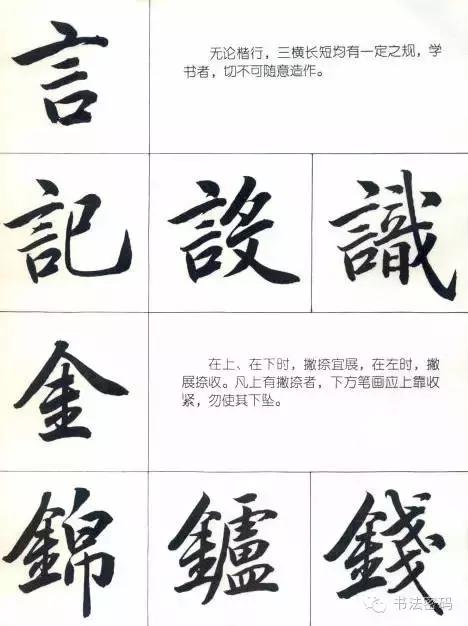 言
无论楷行，三横长短均有一定之规，学
书者，切不可随意造作。
記 設 識
金
在上、在下时，撇捺宜展，在左时，撇
展捺收。凡上有撇捺者，下方笔画应上靠收
紧，勿使其下坠。
錦 鑪 錢
书法密码